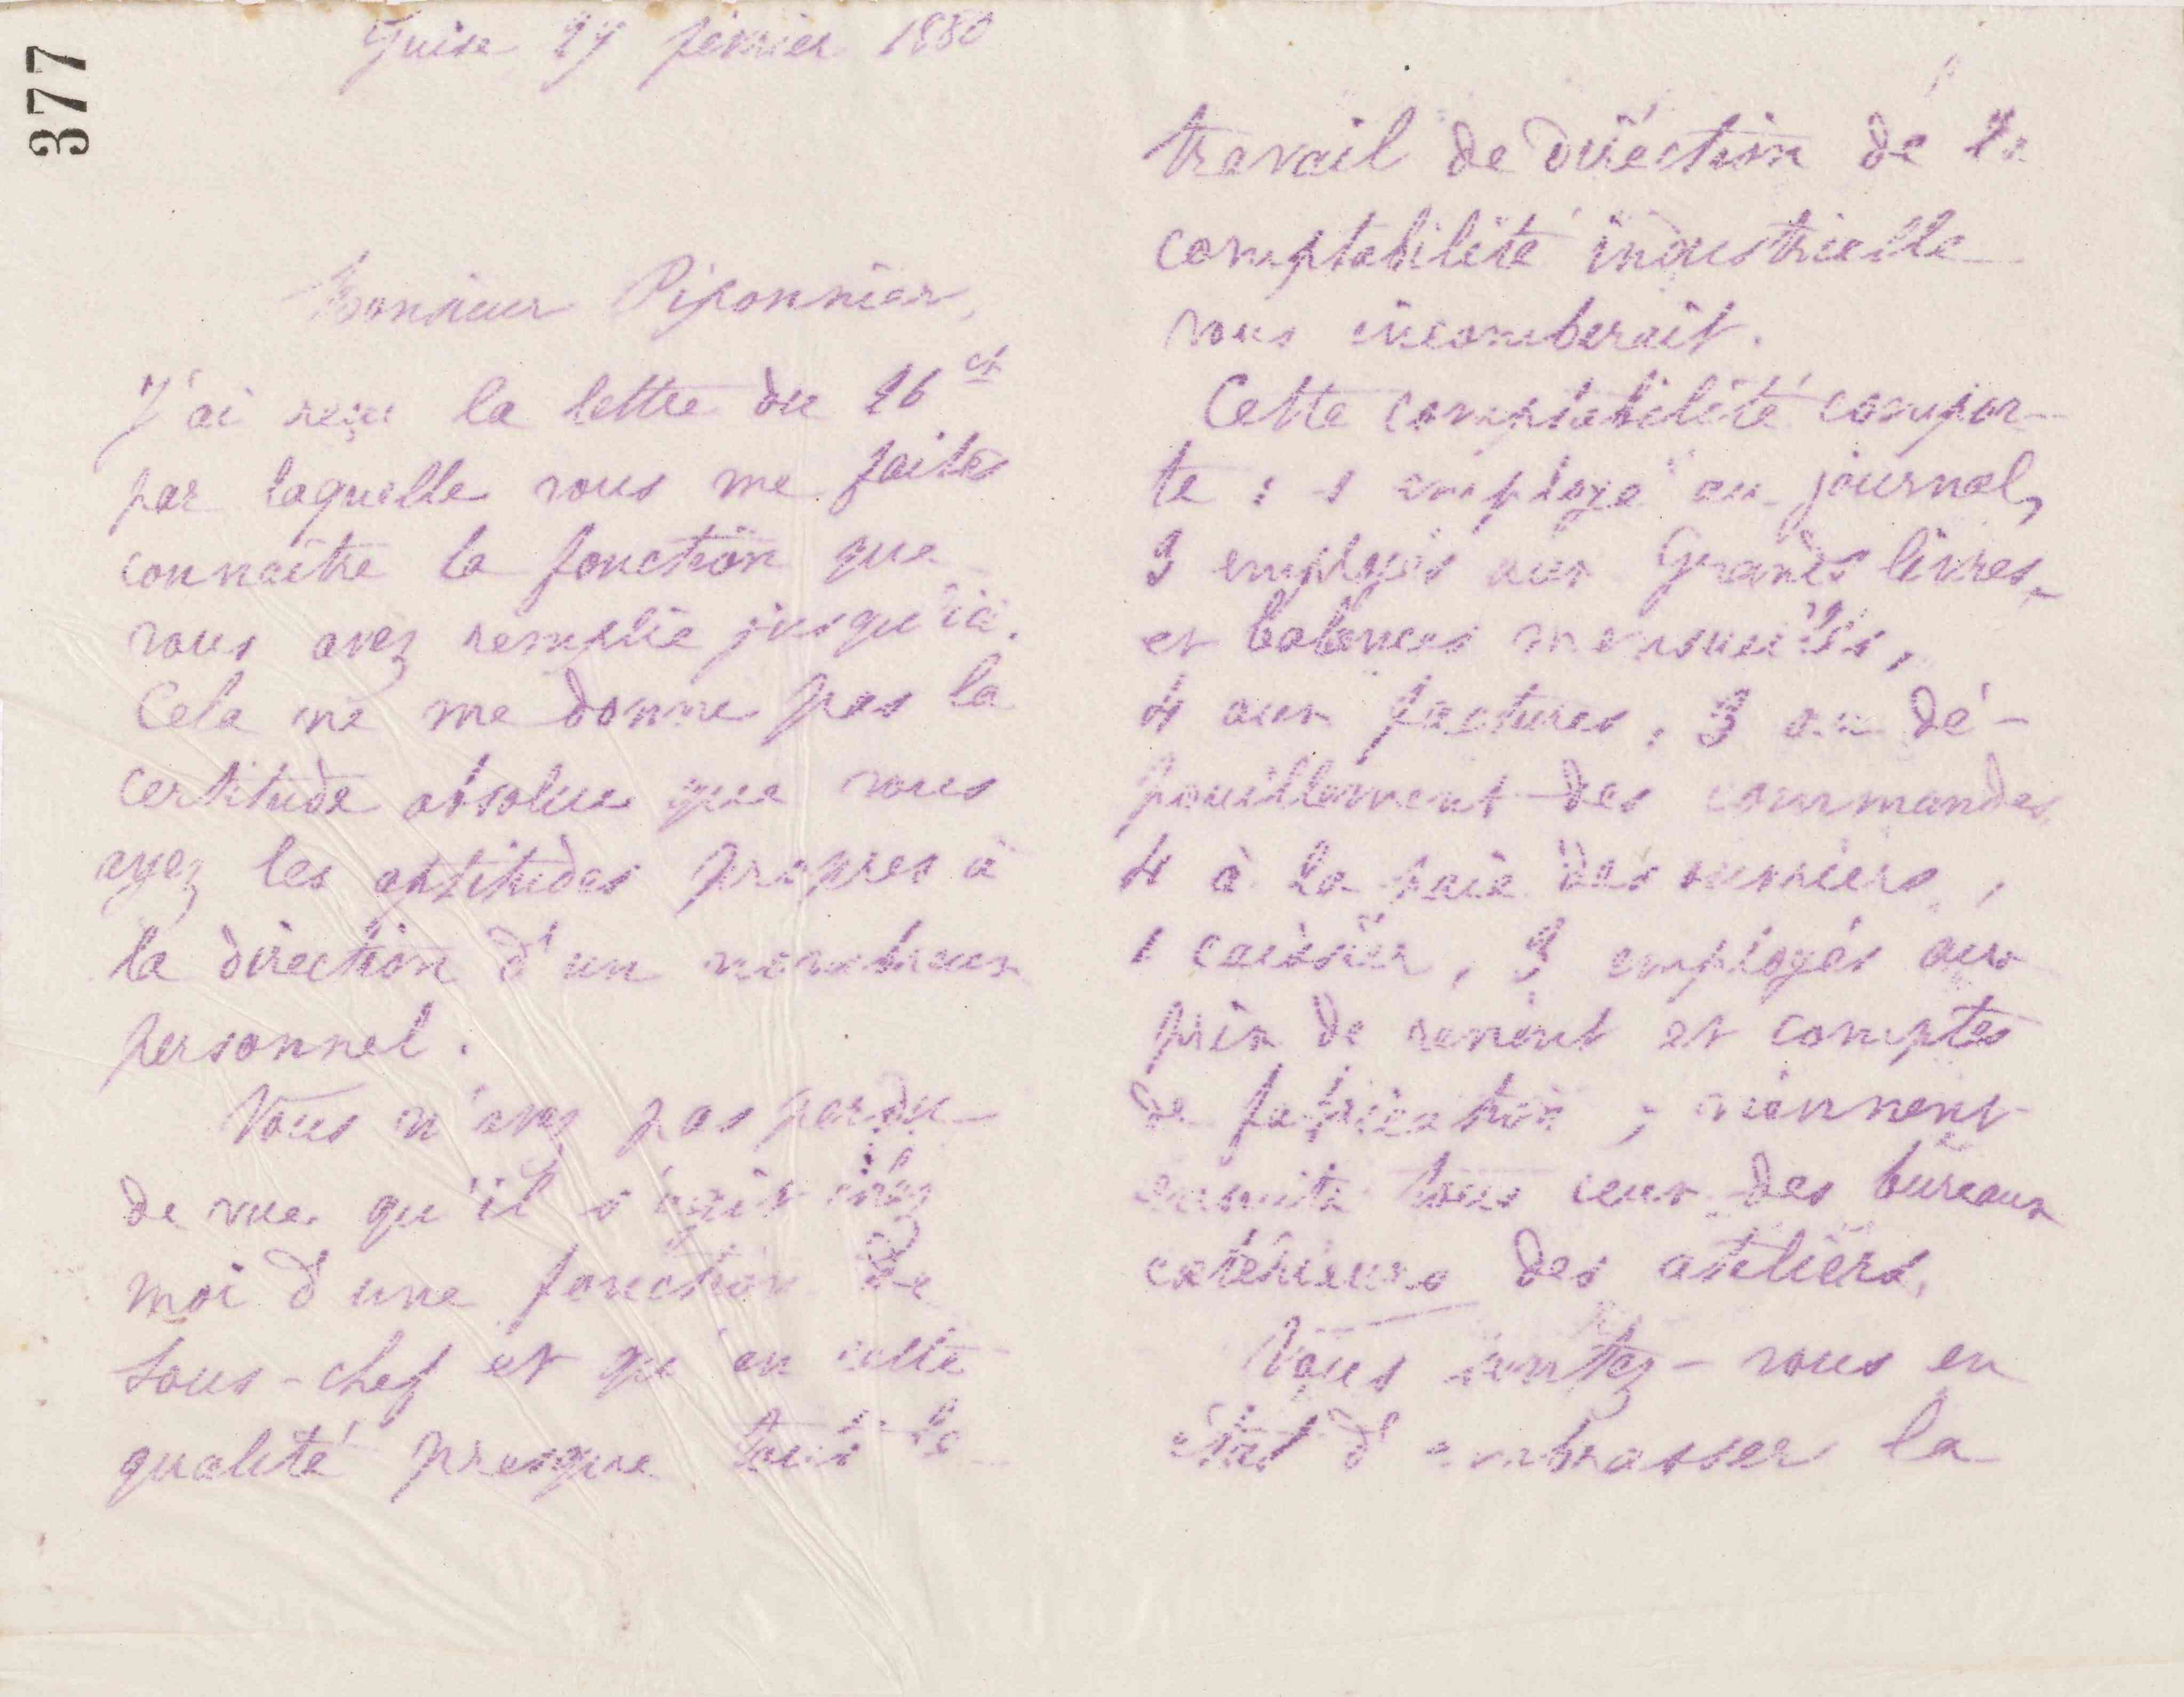 377
Guise 27 février 1880
Monsieur Piponnier,
J'ai reçu la lettre du 26 ct
par laquelle vous me faites
connaître la fonction que
vous avez remplie jusqu'ici.
Cela ne me donne pas la
certitude absolue que vous
ayez les aptitudes propres à
la direction d'un nombreux
personnel.
Vous n'avez pas perdu
de vue qu'il s'agit chez
moi d'une fonction de
sous-chef et qu'en cette
qualité presque tout le
travail de direction de la
comptabilité industrielle
vous incomberait.
Cette comptabilité compor-
te : 1 employé au journal,
3 employés aux Grands livres,
et balances mensuelles,
4 aux factures, 3 au dé-
pouillement des commandes,
4 à la paie des ouvriers,
1 caissier, 3 employés aux
prix de revient et comptes
de fabrication ; viennent
ensuite tous ceux des bureaux
extérieurs des ateliers.
Vous sentez-vous en
état d'embrasser la